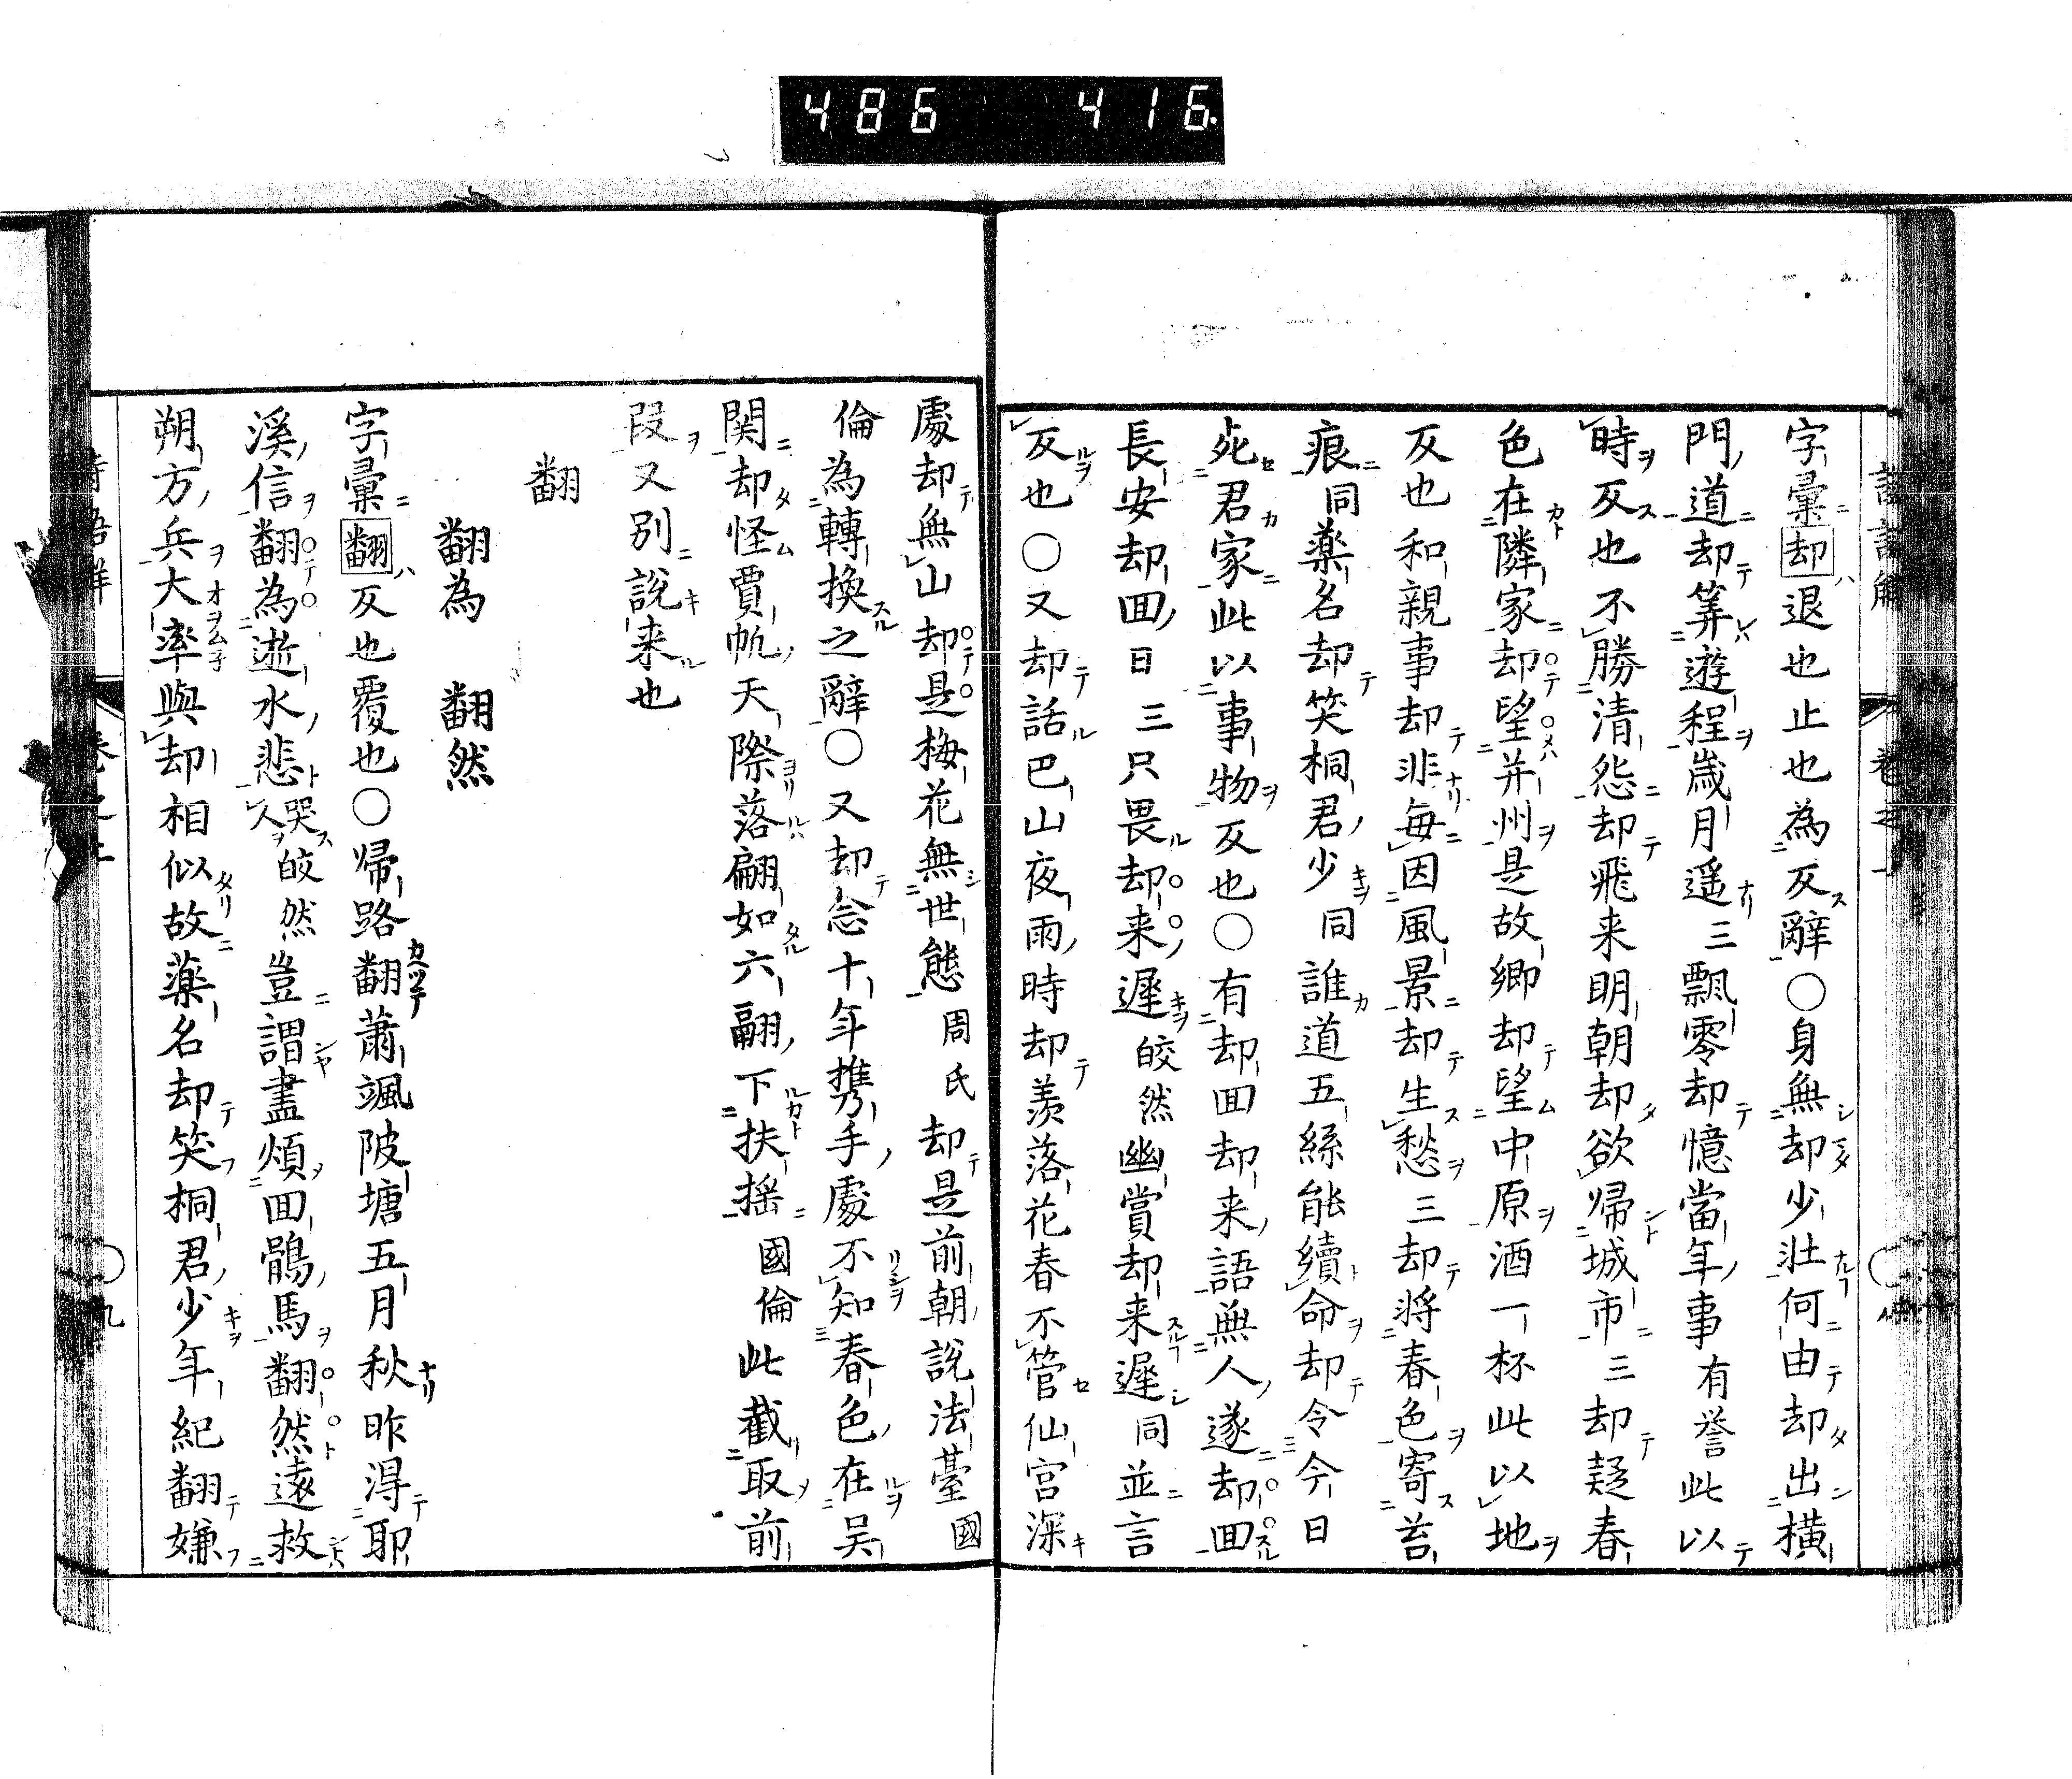 486 416.
字彙却退也止也為反辭〇身無却少壯何由却出橫
門道却筭遊程歲月遥三飄零却憶當年事有誉此以
時反也不勝清怨却飛来明朝却欲帰城市三却疑春
色在隣家却望并州是故郷却望中原酒一杯此以地
反也和親事却非毎因風景却生愁三却將春色寄苔
痕同薬名却笑桐君少同誰道五絲能續命却令今日
死君家此以事物反也〇有却囬却来語無人遂却囬
長安却囬日三只畏却来遲皎然幽賞却来遲同並言
反也〇又却話巴山夜雨時却羨落花春不管仙宮深
處却無山却是梅花無世態周氏却是前朝說法臺國
倫為轉換之辭〇又却念十年携手處不知春色在吴
関却怪賈帆天際落翩如六翮下扶揺國倫此截取前
段又別說来也
翻
翻為 翻然
字彙翻反也覆也〇帰路翻蕭颯陂塘五月秋昨淂耶
溪信翻為逝水悲哭人皎然豈謂盡煩囬鶻馬翻然遠救
朔方兵大率與却相似故薬名却笑桐君少年紀翻嫌